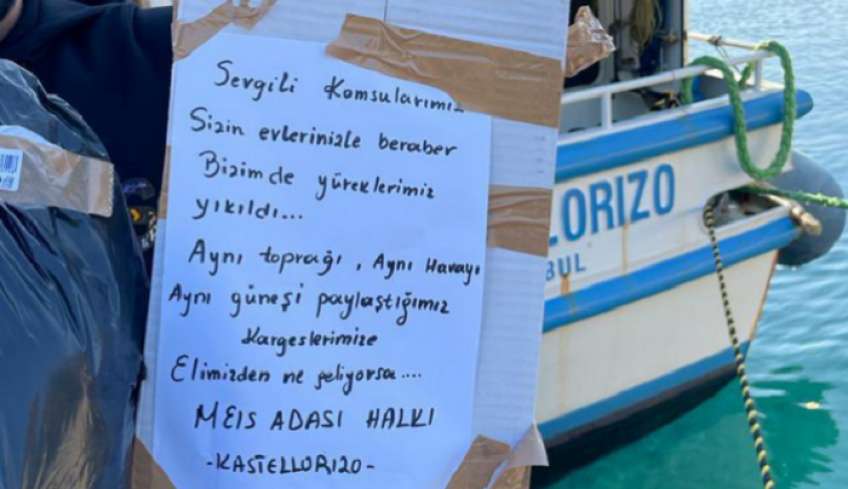 Sevgili Komsularımız
Sizin evlerinizle beraber
Bizimde yüreklerimiz
yıkıldı...
Aynı toprağı, Aynı Havayı
Aynı güneşi paylaştığımız
Kargeslerimize
Elimizden ne geliyorsa....
MEIS ADASI HALKI
-KASTELLORIZO-
LORIZO
BUL